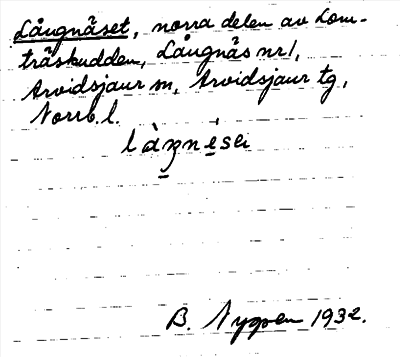 Långnäset, norra delen av Lom-
träskudden, Långnäs nr 1,
Arvidsjaur sn, Arvidsjaur tg,
Norrb. l.
B. Nygren 1932.